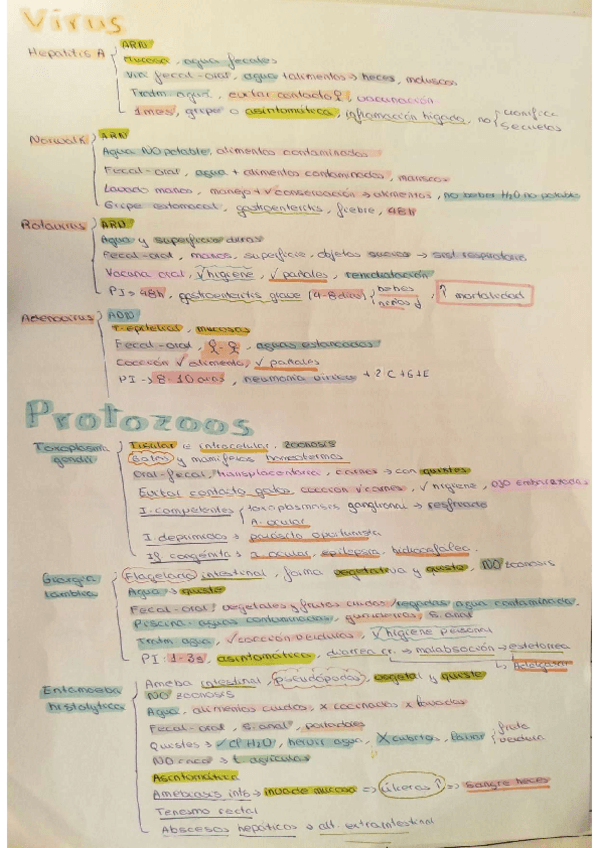 Virus
Hepatitis A ARN
Mucosa, aguas fecales
Vía fecal-oral, agua + alimentos → heces, moluscos
Tratm agua, evitar contacto, vacunación
1 mes, gripe o asintomática, inflamación hígado, no cronifica
secuelas
Norwalk ARN
Agua NO potable, alimentos contaminados
Fecal-oral, agua + alimentos contaminados, marisco
Lavado manos, manejo + √ conservación → alimentos, no beber H2O no potable
Gripe estomacal, gastroenteritis, fiebre, 48h
Rotavirus ARN
Agua y superficies duras
Fecal-oral, manos, superficie, objetos sucios → sist respiratorio
Vacuna oral, √ higiene, √ pañales, rehidratación
PI → 48h, gastroenteritis grave (4-8 días) bebes
niños, ↑ mortalidad
Adenovirus ADN
T. epitelial, mucosas
Fecal-oral, aguas estancadas
Cocción √ alimento, √ pañales
PI → 8-10 días, neumonía vírica + 2 C + G + E
Protozoos
Toxoplasma gondii Tisular e intracelular, zoonosis
Gatos y mamíferos homeotermos
Oral-fecal, transplacentaria, carnes → con quistes
Evitar contacto gatos, cocción √ carnes, √ higiene, ojo embarazadas
I. competentes toxoplasmosis ganglionar → resfriado
A. ocular
I. deprimidos → parásito oportunista
congénita → I. ocular, epilepsia, hidrocefalea.
Giardia lamblia Flagelado intestinal, forma vegetativa y quiste, NO zoonosis
Agua → quiste
Fecal-oral: vegetales y frutas crudas / regadas agua contaminada.
Piscina-aguas contaminadas, guarderías, S. anal
Tratm agua, √ cocción verduras, √ higiene personal
PI: 1-3s, asintomática, diarrea cr. → malabsorción → esteatorrea
↳ adelgazam
Entamoeba histolytica Ameba intestinal, pseudópodos, vegetal y quiste
NO zoonosis
Agua, alimentos crudos, x cocinados x lavados
Fecal-oral, S. anal, portadores
Quistes → √ Cl H2O, hervir agua, X cubitos, lavar fruta
verdura
NO → t. agrícolas
Asintomática
Amebiasis ints → invade mucosa => úlceras ↑ => Sangre heces
Tenesmo rectal
Abscesos hepáticos → alt. extraintestinal